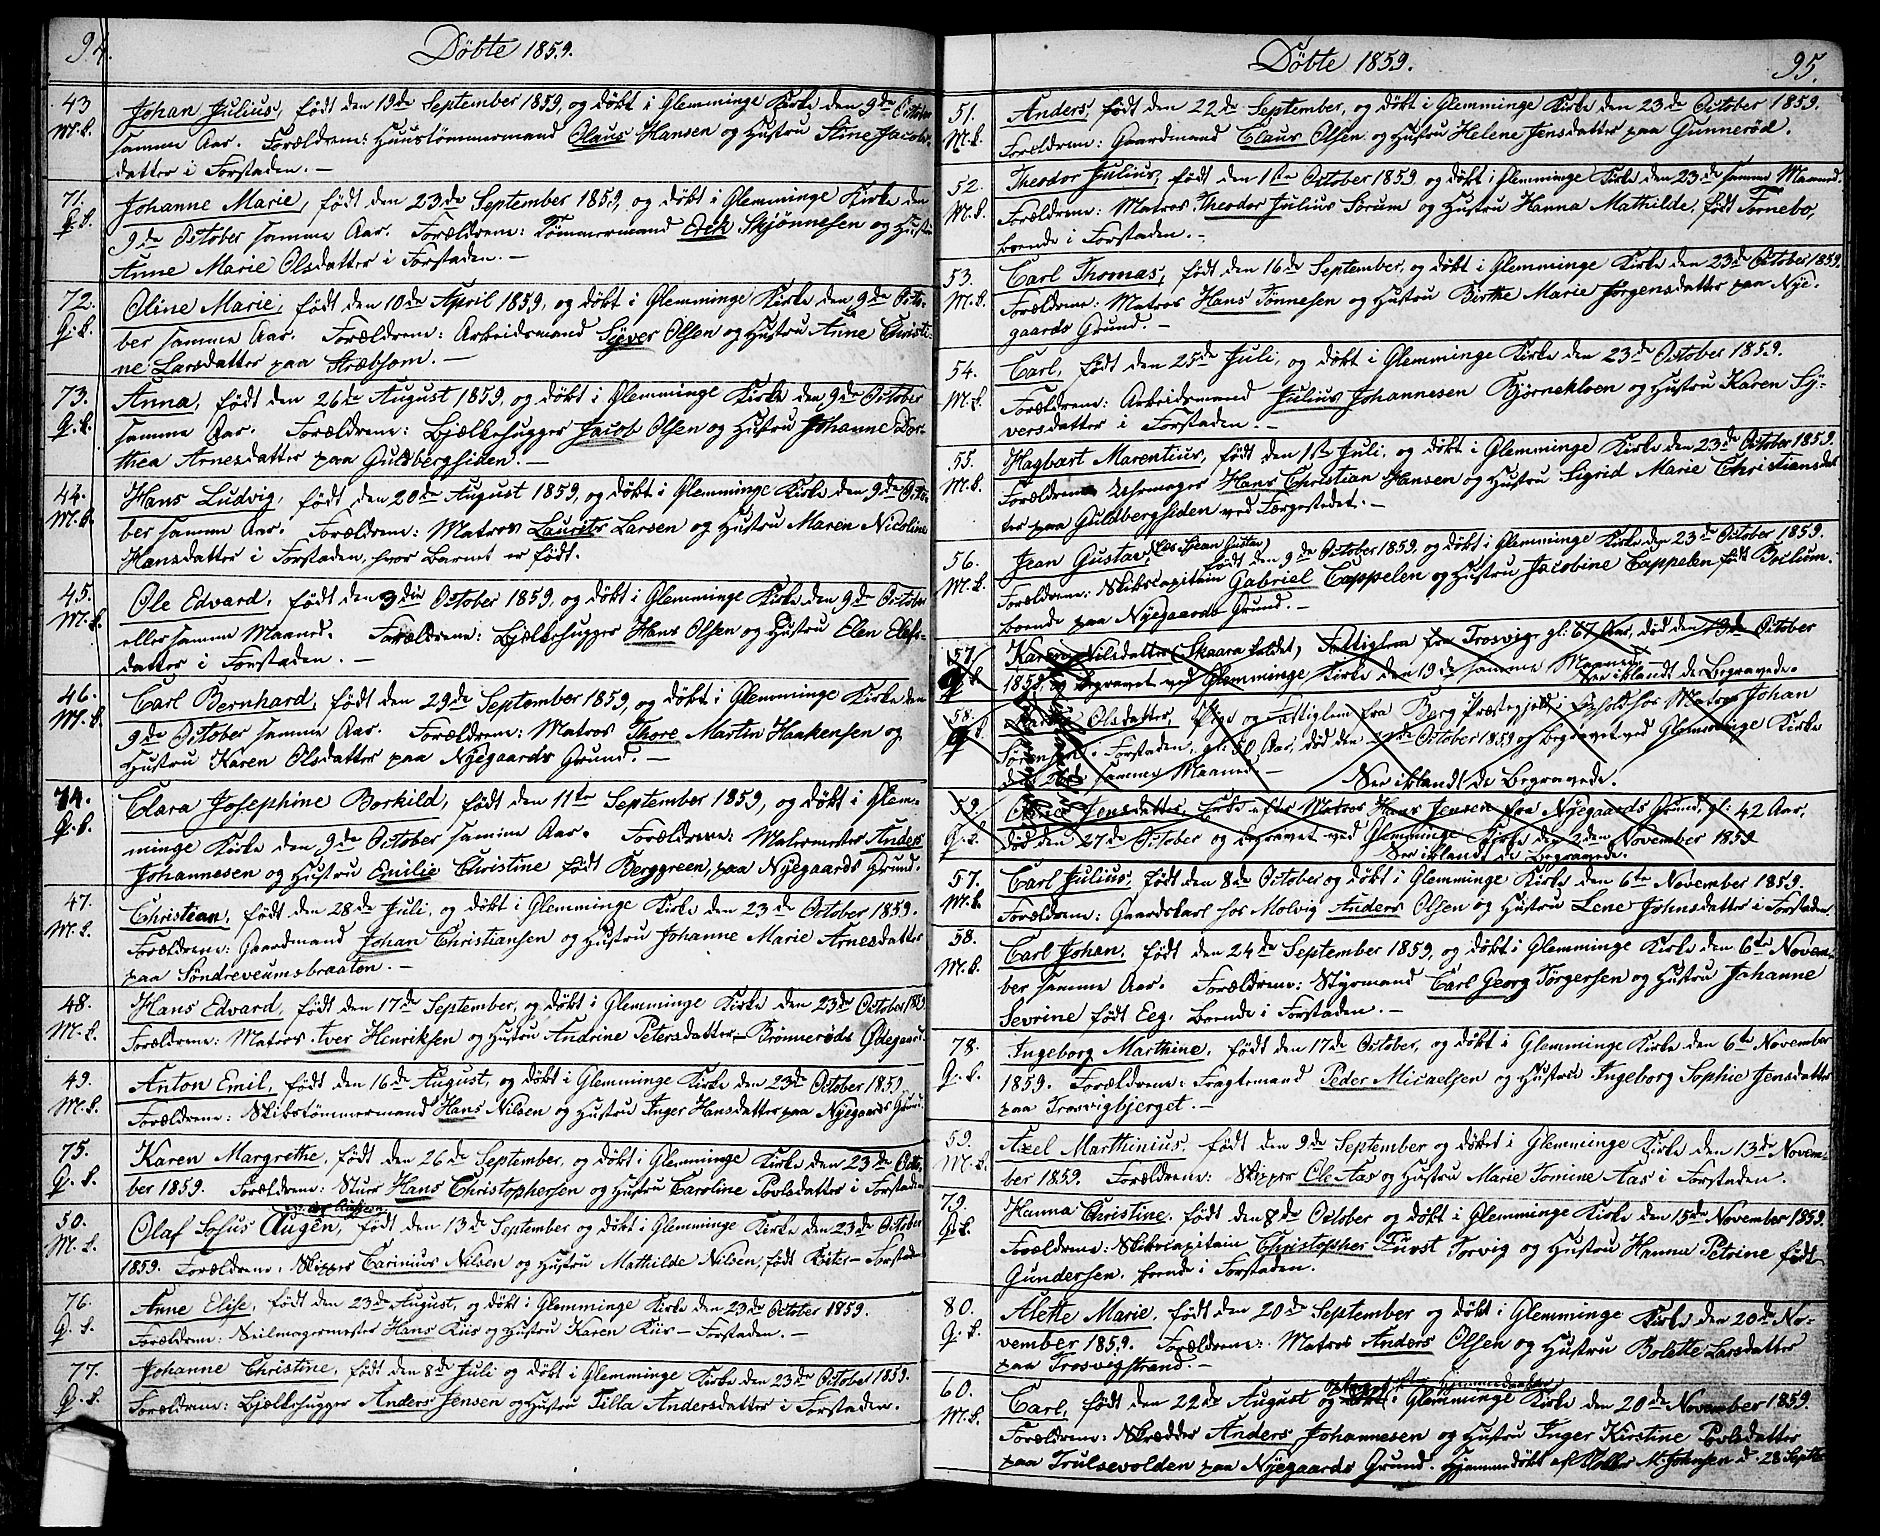 94.
Döbte 1859.
43
M.k.
Johan Julius, födt den 19de September 1859, og dökt i Glemminge Kirke den 9de October
samme Aar. Forældrene: Huustömmermand Olaus Hansen og Hustru Stine Jacobs-
datter i Forstaden. —
71.
Q.k.
Johanne Marie, födt den 23de September 1859, og dökt i Glemminge Kirke den
9de October samme Aar. Forældrene: Tömmermand Erik Skjönnesen og Hustru
Anne Marie Olsdatter i Forstaden. —
72.
Q.k.
Oline Marie, födt den 10de April 1859, og dökt i Glemminge Kirke den 9de Octo-
ber samme Aar. Forældrene: Arbeidsmand Syver Olsen og Hustru Anne Christi-
ne Larsdatter paa Stræbsom. —
73.
Q.k.
Anna, födt den 26de August 1859, og dökt i Glemminge Kirke den 9de October
samme Aar. Forældrene: Bjælkehugger Jacob Olsen og Hustru Johanne Dor-
thea Arnesdatter paa Guldbergsiden. —
44.
M.k.
Hans Ludvig, födt den 20de August 1859, og dökt i Glemminge Kirke den 9de Octo-
ber samme Aar. Forældrene: Matros Laurits Larsen og Hustru Maren Nicoline
Hansdatter i Forstaden, hvor Barnet er födt.
45.
M.k.
Ole Edvard, födt den 3die October 1859, og dökt i Glemminge Kirke den 9de October
eller samme Maaned. Forældrene: Bjælkehugger Hans Olsen og Hustru Elen Elefs-
datter i Forstaden. —
46.
M.k.
Carl Bernhard, födt den 29de September 1859, og dökt i Glemminge Kirke den
9de October samme Aar. Forældrene: Matros Thore Martin Haakensen og
Hustru Karen Olsdatter paa Nyegaards Grund. —
74.
Q.k.
Clara Josephine Borkild, födt den 11te September 1859, og dökt i Glem-
minge Kirke den 9de October samme Aar. Forældrene: Malermester Anders
Johannesen og Hustru Emilie Christine födt Berggreen, paa Nyegaards Grund.
47.
M.k.
Christian, födt den 28de Juli, og dökt i Glemminge Kirke den 23de October 1859.
Forældrene: Gaardmand Johan Christiansen og Hustru Johanne Marie Arnesdatter
paa Söndreveumsbraaten. —
48.
M.k.
Hans Edvard, födt den 17de September, og dökt i Glemminge Kirke den 23de October 1859
Forældrene: Matros Iver Henriksen og Hustru Andrine Petersdatter — Brönneröds Ödegaard.
49.
M.k.
Anton Emil, födt den 16de August, og dökt i Glemminge Kirke den 23de October 1859.
Forældrene: Skibstömmermand Hans Nilsen og Hustru Inger Hansdatter paa Nyegaards Grund.
75.
Q.k.
Karen Margrethe, födt den 26de September, og dökt i Glemminge Kirke den 23de Octo-
ber 1859. Forældrene: Stuer Hans Christophersen og Hustru Caroline Povlsdatter i Forstaden
50.
M.k.
Olaf Lofus Augen, födt den 13de September og dökt i Glemminge Kirke den 23de October
1859. Forældrene: Skipper Carinius Nilsen og Hustru Mathilde Nilsen, födt Röter — Forstaden
76.
Q.k.
Anne Elise, födt den 23de August, og dökt i Glemminge Kirke den 23de October 1859.
Forældrene: Seilmagermester Hans Kiis og Hustru Karen Kiis — Forstaden. —
77.
Q.k.
Johanne Christine, födt den 8de Juli og dökt i Glemminge Kirke den 23de October 1859.
Forældrene: Bjælkehugger Anders Jensen og Hustru Tilla Andersdatter i Forstaden.
Döbte 1859.
95.
51.
M.k.
Anders, födt den 22de September, og dökt i Glemminge Kirke den 23de October 1859.
Forældrene: Gaardmand Claus Olsen og Hustru Helene Jensdatter paa Gunneröd.
52.
M.k.
Theodor Julius, födt den 1ste October 1859, og dökt i Glemminge Kirke den 23de samme Maaned.
Forældrene: Matros Theodor Julius Sörum og Hustru Hanna Mathilde, födt Tornebo,
boende i Forstaden. —
53.
M.k.
Carl Thomas, födt den 16de September, og dökt i Glemminge Kirke den 23de October 1859.
Forældrene: Matros Hans Tönnesen og Hustru Birthe Marie Jörgensdatter paa Nye-
gaards Grund. —
54.
M.k.
Carl, födt den 25de Juli, og dökt i Glemminge Kirke den 23de October 1859.
Forældrene: Arbeidsmand Julius Johannesen Björnekloen og Hustru Karen Sy-
versdatter i Forstaden. —
55.
M.k.
Hagbart Marentius, födt den 1ste Juli, og dökt i Glemminge Kirke den 23de October 1859.
Forældrene Uhrmager Hans Christian Hansen og Hustru Sigrid Marie Christiansdat
ter paa Guldbergsiden ved Færgestedet. —
56.
M.k.
Jean Gustav, (læs Sjean Gustav) födt den 9de October 1859, og dökt i Glemminge Kirke den 23de October 1859.
Forældrene: Skibscapitain Gabriel Cappelen og Hustru Jacobine Cappelen födt Boilum.
boende paa Nyegaards Grund. —
57.
Q.k.
Karen Nilsdatter (Skaara kaldet) Fattiglem fra Trosvig, gl: 67 Aar, död den 13de October
1859, og begravet ved Glemminge Kirke den 19de samme Maaned.
See iblandt de Begravede.
58.
Q.k.
Olsdatter, Pige og Fattiglem fra Berg Præstegjeld i Ophold hos Matros Johan
Sörensen. Forstaden, gl: 50 Aar, död den October 1859 og begravet ved Glemminge Kirke
den samme Maaned. —
See iblandt de Begravede.
59.
Q.k.
Jensdatter, Enke efter Matros Hans Jensen fra Nyegaards Grund, gl: 42 Aar,
död den 27de October og begravet ved Glemminge Kirke den 2den November 1859
See iblandt de Begravede.
57.
M.k.
Carl Julius, födt den 8de October og dökt i Glemminge Kirke den 6te November 1859.
Forældrene: Gaardskarl hos Molvig Anders Olsen og Hustru Lene Johnsdatter i Forstaden.
58.
M.k.
Carl Johan, födt den 24de September 1859, og dökt i Glemminge Kirke den 6te Novem-
ber samme Aar. Forældrene: Styrmand Carl Georg Törgersen og Hustru Johanne
Sevrine födt Eeg. Boende i Forstaden. —
78.
Q.k.
Ingeborg Marthine, födt den 17de October, og dökt i Glemminge Kirke den 6te November
1859. Forældrene: Fragtemand Peder Micaelsen og Hustru Ingeborg Sophie Jensdatter
paa Trosvigbjerget. —
59.
M.k.
Axel Marthinius, födt den 9de September og döbt i Glemminge Kirke den 13de Novem-
ber 1859. Forældrene: Skipper Ole Aas og Hustru Marie Tomine Aas i Forstaden.
79.
Q.k.
Hanna Christine, födt den 8de October og dökt i Glemminge Kirke den 15de November 1859.
Forældrene: Skibscapitain Christopher Fürst Torvig og Hustru Hanna Petrine födt
Gundersen, boende i Forstaden.
80.
Q.k.
Alette Marie, födt den 20de September og dökt i Glemminge Kirke den 20de No-
vember 1859. Forældrene: Matros Anders Olsen og Hustru Bolette Larsdatter
paa Trosvigstrand. —
60.
M.k.
Carl, födt den 22de August og i Glemminge Kirke den 20de November 1859.
Forældrene: Skrædder Anders Johannesen og Hustru Inger Kirstine Povlsdatter
paa Trulsevolden paa Nyegaards Grund. Hjemmedöbt af Klokker M. Johnsen d. 28 Septbr